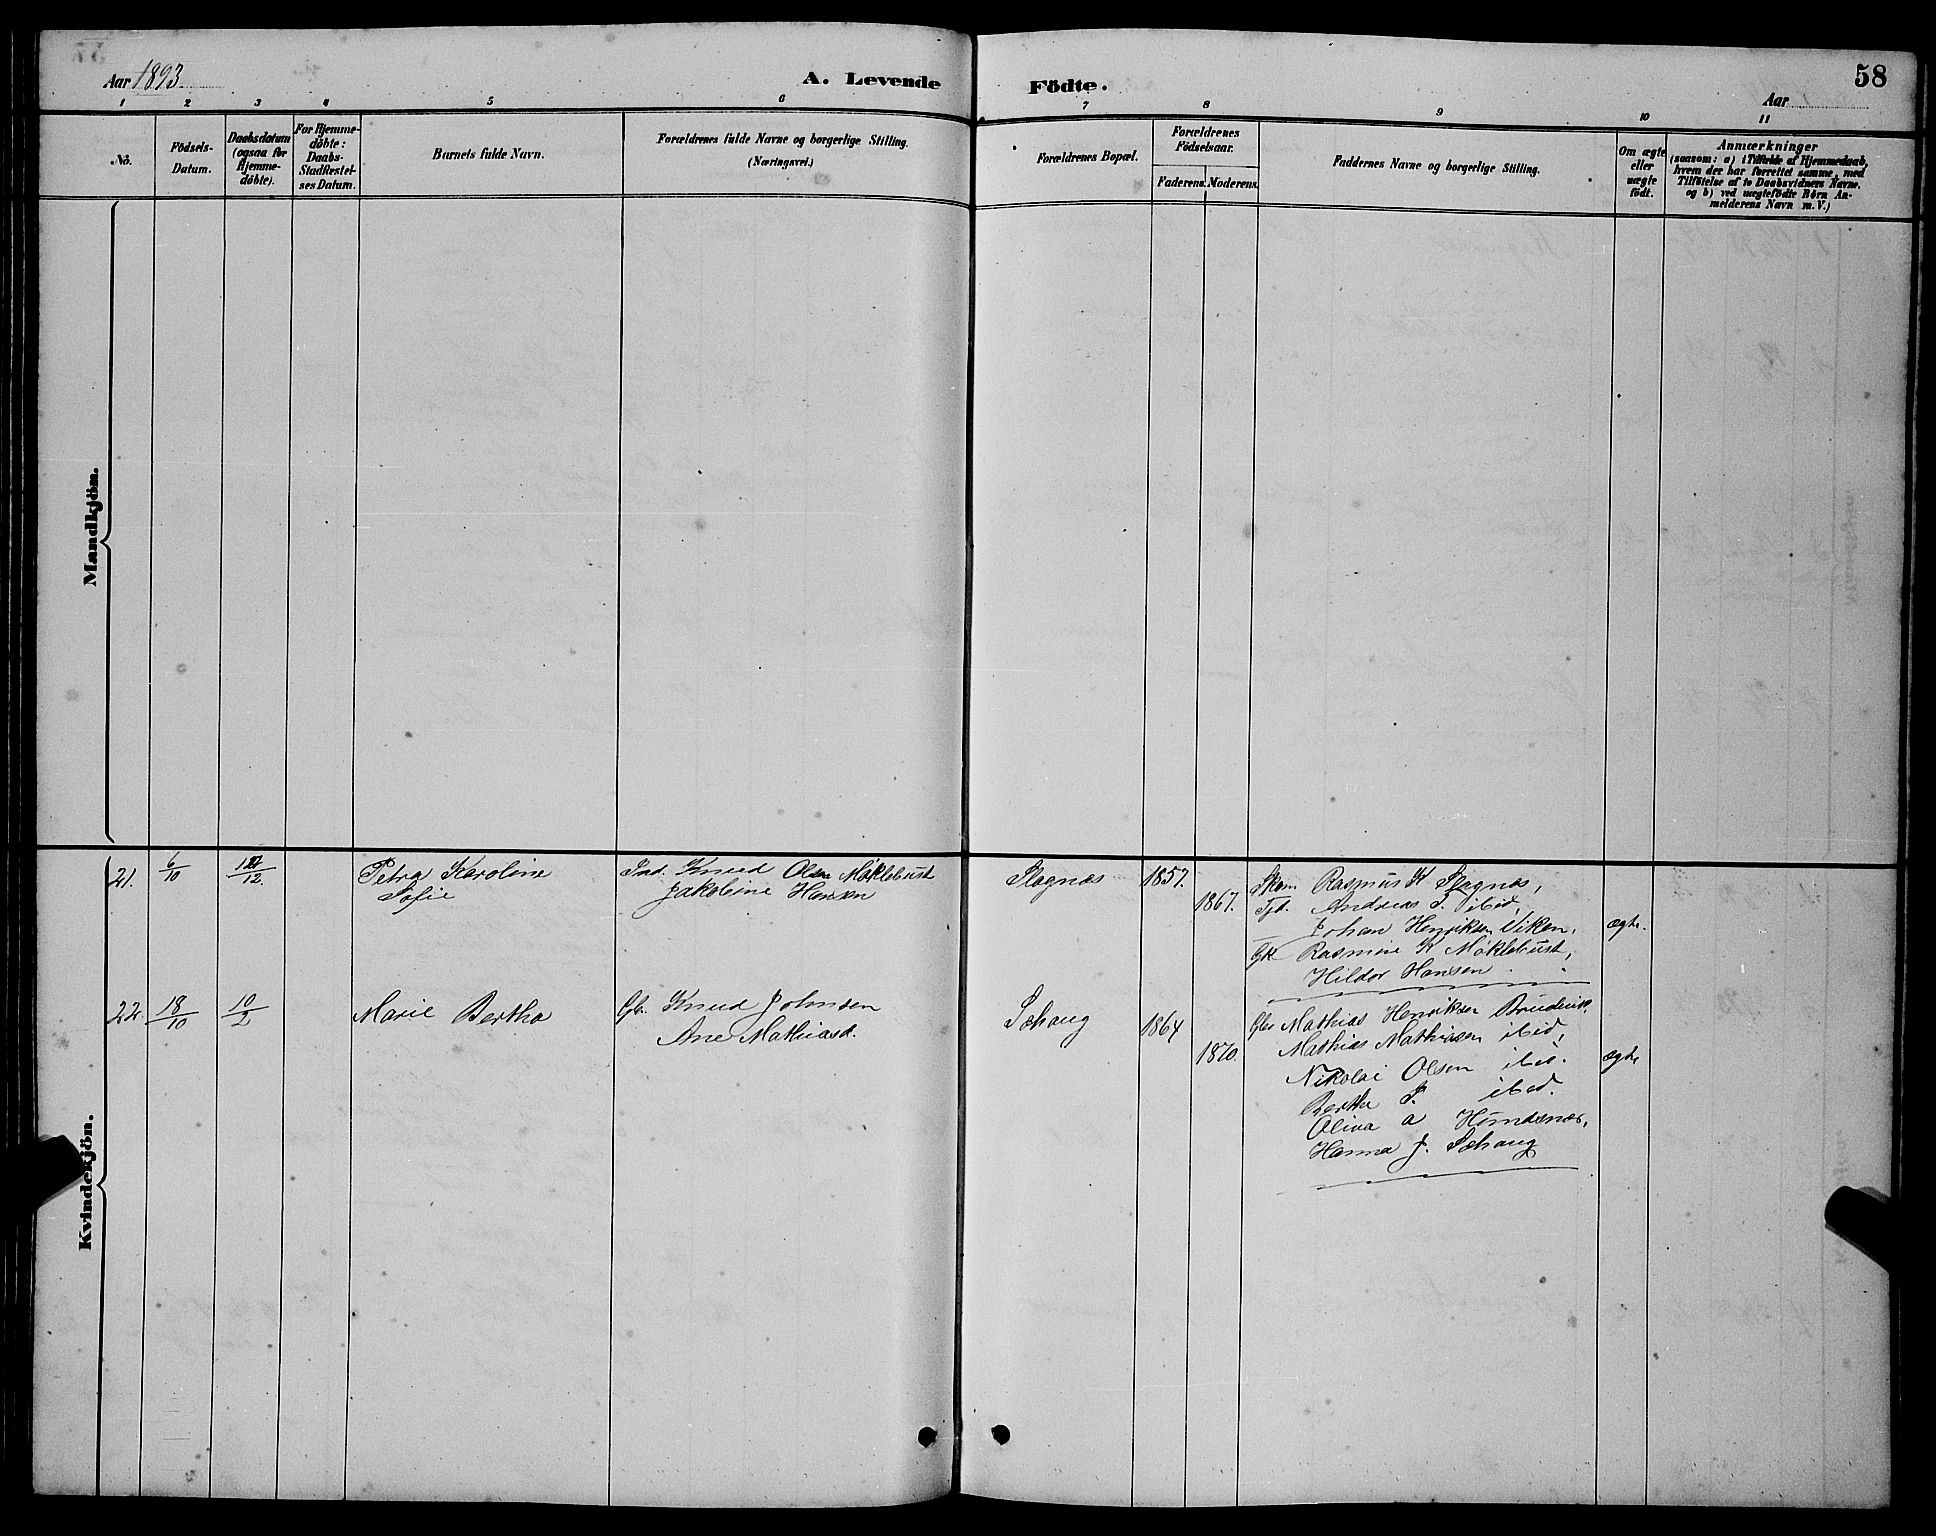 Aar 1893.
A. Levende
Födte.
58
Aar
1 2 3 4 5 6 7 8 9 10 11
No.
Födsels-
Datum.
Daabsdatum
(ogsaa for
Hjemme-
döbte).
For Hjemme-
döbte:
Daabs-
Stadfæstel-
ses Datum.
Barnets fulde Navn.
Forældrenes fulde Navne og borgerlige Stilling.
(Næringsvei.)
Forældrenes Bopæl.
Forældrenes
Födselsaar.
Faderens.
Moderens.
Faddernes Navne og borgerlige Stilling.
Om ægte
eller
uægte
födt.
Anmærkninger
(saasom: a) i Tilfælde af Hjemmedaab,
hvem der har forrettet samme, med
Tilföielse af to Daabsvidners Navne,
og b) ved uægtefödte Börn An-
melderens Navn m. V.)
Mandkjön.
Kvindekjön.
21.
6/10
/12.
Petra Karoline
Sofie
Ind. Knud Olsen Möklebust
Jakobine Hansen
Slagnæs
1857.
1867.
Rasmus K Slagnæs,
Andreas J. ibid,
Johan Henriksen Viken,
Rasmine K Möklebust,
Hildor Hansen
ægte.
22.
18/10
10/2
Marie Bertha
Gbr. Knud Johnsen
Ane Mathiasd.
Sæhaug
1864
1870.
Gbr Mathias Henriksen
Mathias Mathiasen ibid,
Nikolai Olsen ibid.
Berthe S. ibid.
Oliva a Hundsnæs,
Hanna J. Sæhaug
ægte